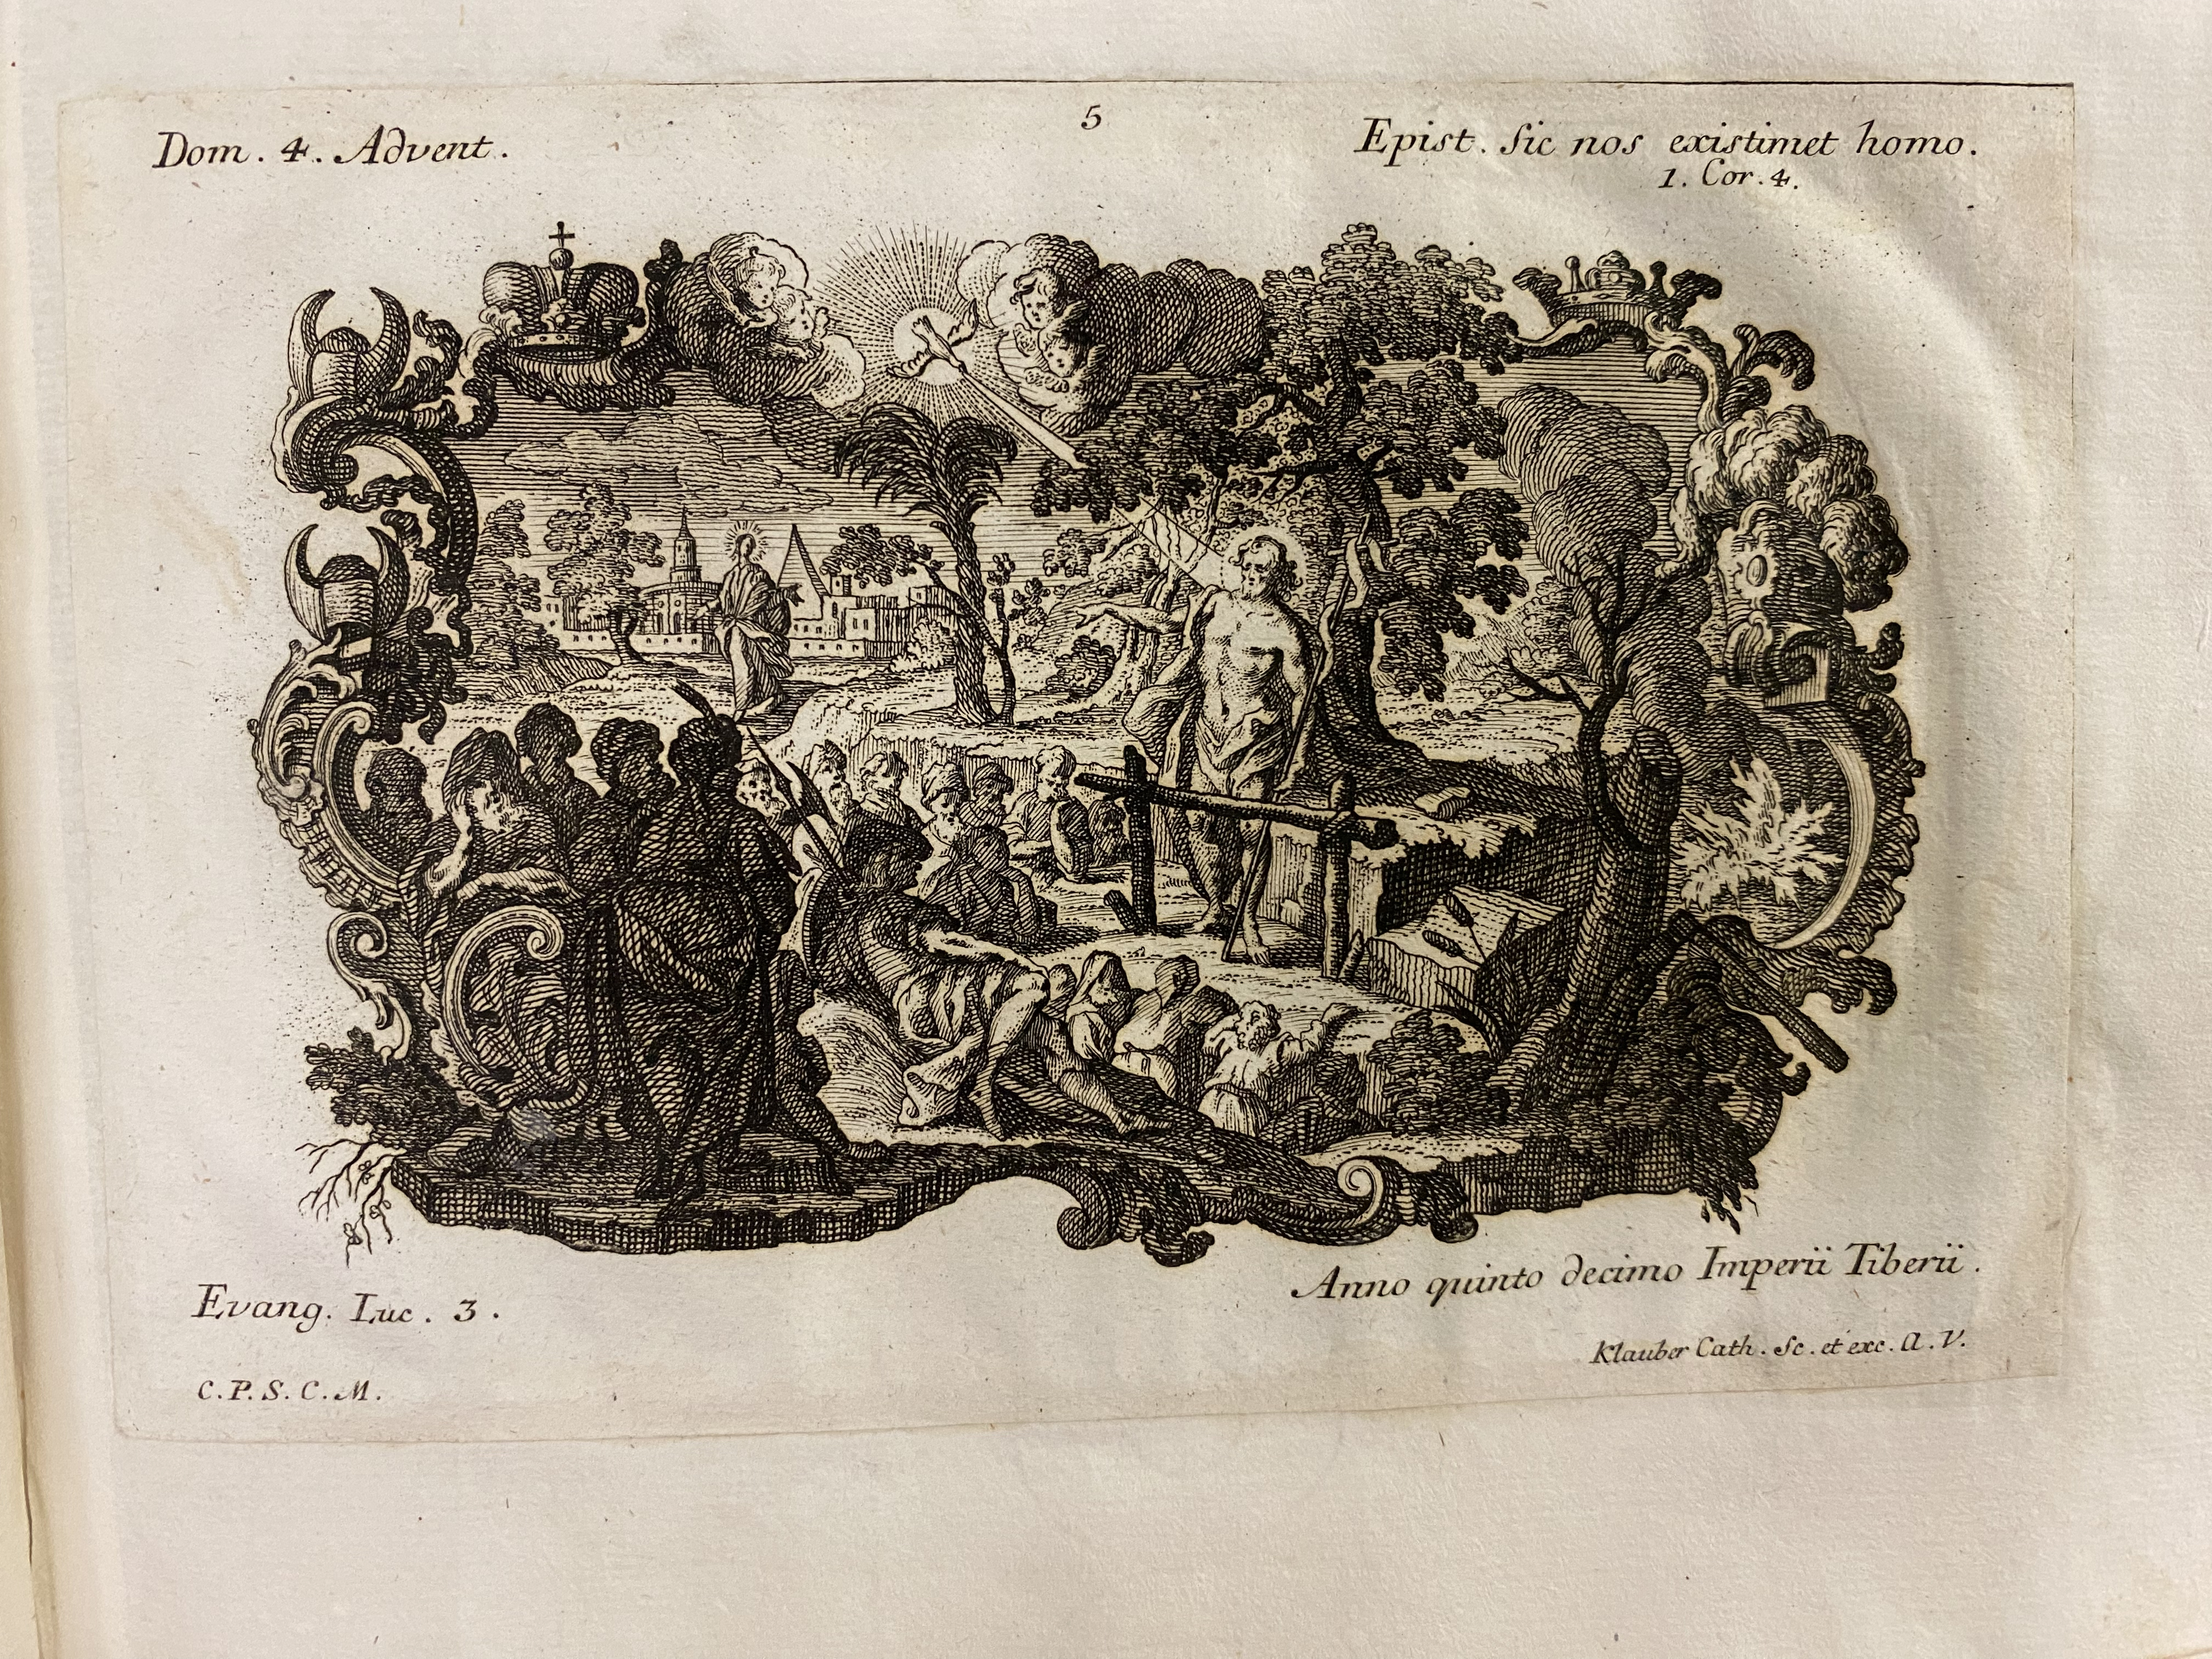 5
Dom. 4. Advent.
Epist. Sic nos existimet homo.
1. Cor. 4.
Evang. Luc. 3.
Anno quinto decimo Imperii Tiberii.
Klauber Cath. Sc. et exc. A. V.
C. P. S. C. M.